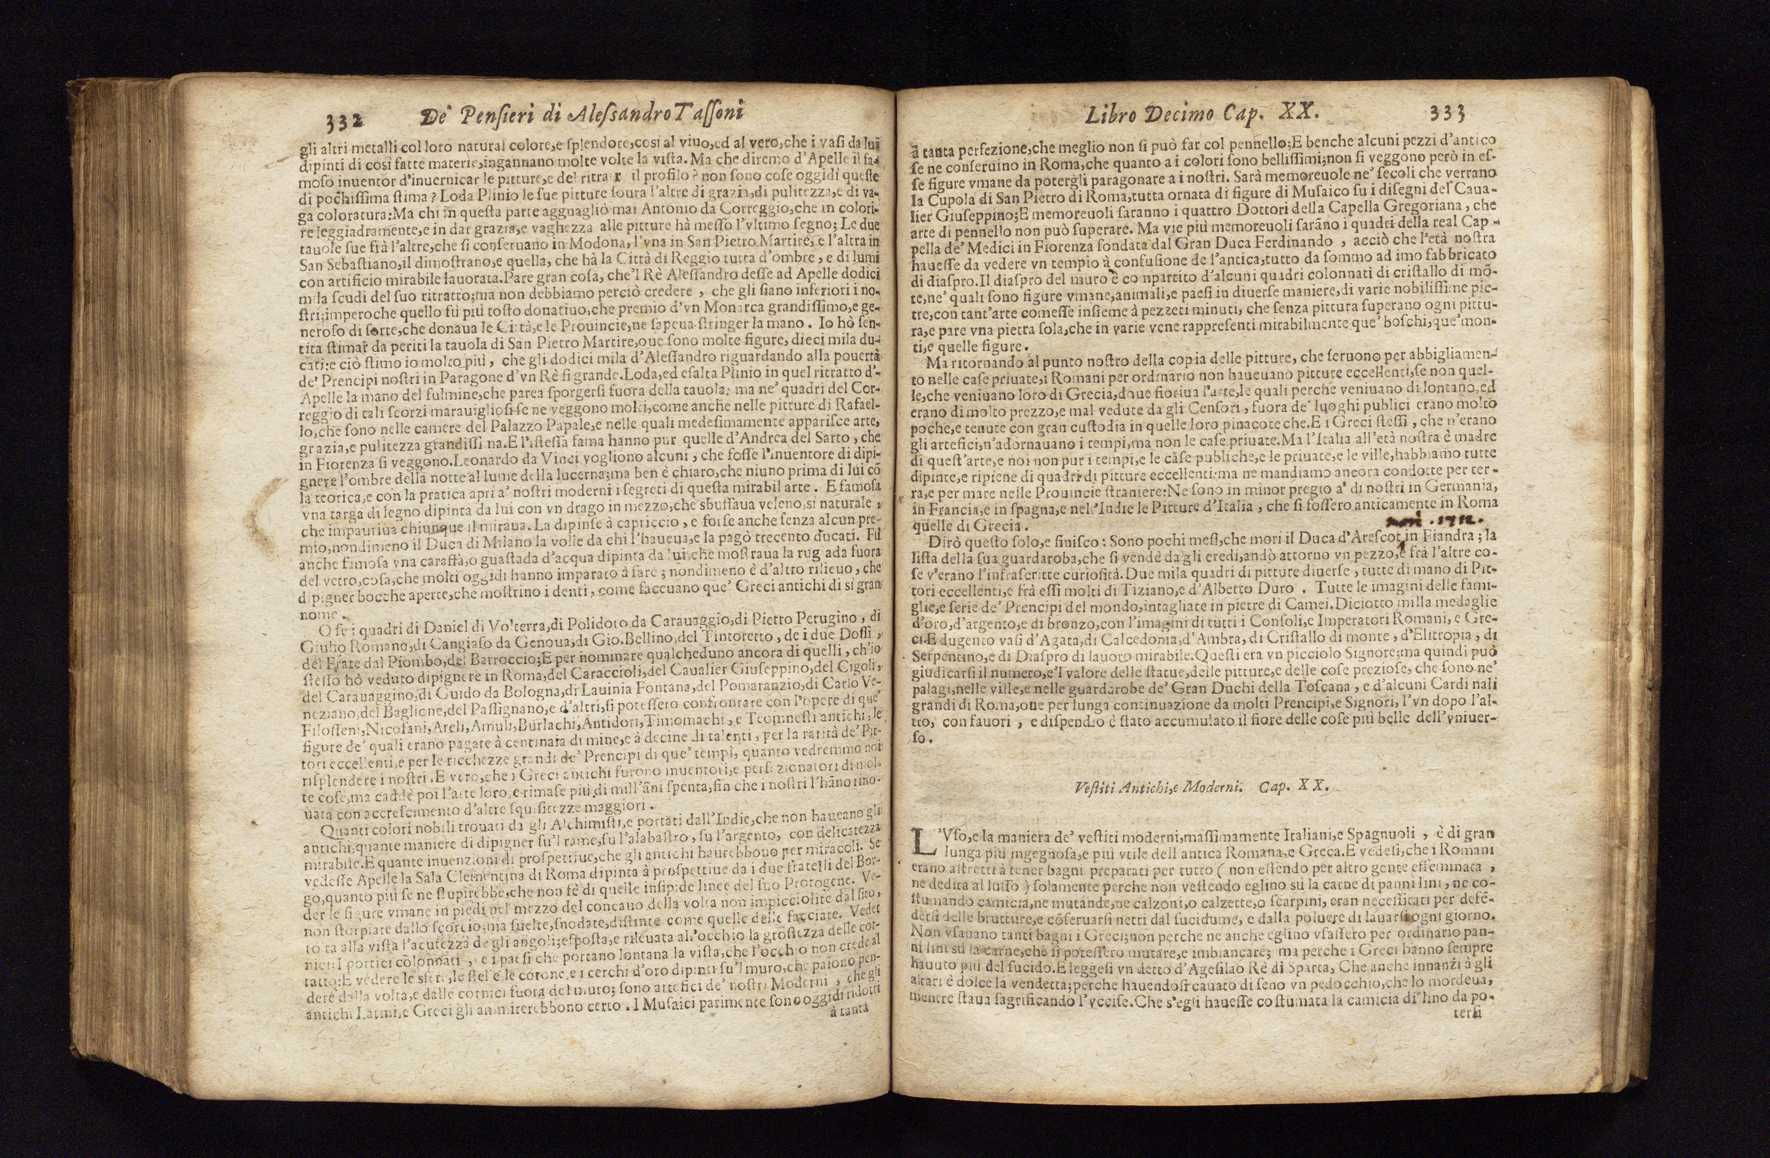 332 De' Penſieri di Aleſsandro Taſſoni
gli altri metalli col loro natural colore,e ſplendore,coſi al viuo,ed al vero,che i vaſi da lui
dipinti di coſi fatte materie,ingannano molte volte la viſta. Ma che diremo d'Apelle il fa-
moſo inuentor d'inuernicar le pitture,e del ritrar il profilo? non ſono coſe oggidì queſte
di pochiſſima ſtima? Loda Plinio le ſue pitture ſoura l'altre di grazia,di pulitezza,e di va-
ga coloratura:Ma chi in queſta parte agguagliò mai Antonio da Correggio,che in colori-
re leggiadramente,e in dar grazia,e vaghezza alle pitture hà meſſo l'vltimo ſegno; Le due
tauole ſue frà l'altre,che ſi conſeruano in Modona,l'vna in San Pietro Martire, e l'altra in
San Sebaſtiano,il dimoſtrano,e quella, che hà la Città di Reggio tutta d'ombre, e di lumi
con artificio mirabile lauorata.Pare gran coſa,che'l Rè Aleſſandro deſſe ad Apelle dodici
mila ſcudi del ſuo ritratto;ma non debbiamo perciò credere , che gli ſiano inferiori i no-
ſtri;imperoche quello fù più toſto donatiuo,che premio d'vn Monarca grandiſſimo,e ge-
neroſo di ſorte,che donaua le Città,e le Prouincie,ne ſapeua ſtringer la mano. Io hò ſen-
tita ſtimar da periti la tauola di San Pietro Martire,oue ſono molte figure, dieci mila du-
cati:e ciò ſtimo io molto più, che gli dodici mila d'Aleſſandro riguardando alla pouertà
de' Prencipi noſtri in Paragone d'vn Rè ſi grande.Loda,ed eſalta Plinio in quel ritratto d'-
Apelle la mano del fulmine,che parea ſporgerſi fuora della tauola; ma ne' quadri del Cor-
reggio di tali ſcorzi marauiglioſi ſe ne veggono molti,come anche nelle pitture di Rafael-
lo,che ſono nelle camere del Palazzo Papale,e nelle quali medeſimamente appariſce arte,
grazia,e pulitezza grandiſſima.E l'iſteſſa fama hanno pur quelle d'Andrea del Sarto , che
in Fiorenza ſi veggono.Leonardo da Vinci vogliono alcuni , che foſſe l'inuentore di dipi-
gnere l'ombre della notte al lume della lucerna;ma ben è chiaro,che niuno prima di lui cõ
la teorica,e con la pratica aprì a' noſtri moderni i ſegreti di queſta mirabil arte. E famoſa
vna targa di legno dipinta da lui con vn drago in mezzo,che sbuffaua veleno,sì naturale ,
che impauriua chiunque il miraua.La dipinſe à capriccio , e forſe anche ſenza alcun pre-
mio,nondimeno il Duca di Milano la volſe da chi l'haueua,e la pagò trecento ducati. Fù
anche famoſa vna caraffa,o guaſtada d'acqua dipinta da lui,che moſtraua la rugiada fuora
del vetro,coſa,che molti oggidì hanno imparato à fare ; nondimeno è d'altro rilieuo , che
dipigner bocche aperte,che moſtrino i denti , come faceuano que' Greci antichi di sì gran
nome.
O ſe i quadri di Daniel di Volterra,di Polidoro da Carauaggio,di Pietro Perugino , di
Giulio Romano,di Cangiaſo da Genoua,di Gio.Bellino,del Tintoretto , de i due Doſſi ,
del Frate dal Piombo,del Barroccio;E per nominare qualcheduno ancora di quelli , ch'io
ſteſſo hò veduto dipignere in Roma,del Caraccioli,del Caualier Giuſeppino,del Cigoli,
del Carauaggino,di Guido da Bologna,di Lauinia Fontana,del Pomaranzio,di Carlo Ve-
neziano,del Baglione,del Paſſignano,e d'altri,ſi poteſſero confrontare con l'opere di que'
Filoſſeni,Nicofani,Areli,Amuli,Burlachi,Antidori,Timomachi , e Teomneſti antichi , le
figure de' quali erano pagate à centinaia di mine,e à decine di talenti , per la rarità de' Pit-
tori eccellenti,e per le ricchezze grandi de' Prencipi di que' tempi, quanto vedremmo noi
riſplendere i noſtri.E vero,che i Greci antichi furono inuentori,e perfezionatori di mol-
te coſe,ma cadde poi l'arte loro,e rimaſe più di mill'ãni ſpenta,fin che i noſtri l'hãno rino-
uata con accreſcimento d'altre ſquiſitezze maggiori.
Quanti colori nobili trouati da gli Alchimiſti,e portati dall'Indie,che non haueano gli
antichi,quante maniere di dipigner ſu'l rame,ſu l'alabaſtro, ſu l'argento, con delicatezza
mirabile.E quante inuenzioni di proſpettiue,che gli antichi haurebbono per miracoli. Se
vedeſſe Apelle la Sala Clementina di Roma dipinta à proſpettiue da i due fratelli del Bor-
go,quanto più ſe ne ſtupirebbe,che non fè di quelle inſipide linee del ſuo Protogene. Ve-
der le figure vmane in piedi nel mezzo del concauo della volta non impicciolite dal ſito,
non ſtorpiate dallo ſcorcio;ma ſuelte,ſnodate,diſtinte come quelle delle facciate. Veder
tolta alla viſta l'acutezza de gli angoli;eſpoſta,e rileuata all'occhio la groſſezza delle cor-
nici:I portici colonnati , e i paeſi che portano lontana la viſta,che l'occhio non crede al
tatto:E vedere le sfere,le ſtelle,le corone,e i cerchi d'oro dipinti ſu'l muro,che paiono pen-
dere dalla volta,e dalle cornici fuora del muro; ſono artefici de' noſtri Moderni , che gli
antichi Latini,e Greci gli ammirerebbono certo. I Muſaici parimente ſono oggidì ridotti
à tanta
Libro Decimo Cap. XX. 333
à tanta perfezione,che meglio non ſi può far col pennello;E benche alcuni pezzi d'antico
ſe ne conſeruino in Roma,che quanto a i colori ſono belliſſimi;non ſi veggono però in eſ-
ſe figure vmane da potergli paragonare a i noſtri. Sarà memoreuole ne' ſecoli che verrano
la Cupola di San Pietro di Roma,tutta ornata di figure di Muſaico ſu i diſegni del Caua-
lier Giuſeppino;E memoreuoli ſaranno i quattro Dottori della Capella Gregoriana, che
arte di pennello non può ſuperare. Ma vie più memoreuoli ſarãno i quadri della real Cap-
pella de' Medici in Fiorenza fondata dal Gran Duca Ferdinando , acciò che l'età noſtra
haueſſe da vedere vn tempio à confuſione de l'antica,tutto da ſommo ad imo fabbricato
di diaſpro.Il diaſpro del muro è conpartito d'alcuni quadri colonnati di criſtallo di mõ-
te,ne' quali ſono figure vmane,animali,e paeſi in diuerſe maniere,di varie nobiliſſime pie-
tre,con tant'arte comeſſe inſieme à pezzeti minuti, che ſenza pittura ſuperano ogni pittu-
ra,e pare vna pietra ſola,che in varie vene rappreſenti mirabilmente que' boſchi,que' mon-
ti,e quelle figure.
Ma ritornando al punto noſtro della copia delle pitture, che ſeruono per abbigliamen-
to nelle caſe priuate,i Romani per ordinario non haueuano pitture eccellenti,ſe non quel-
le,che veniuano loro di Grecia,doue fioriua l'arte,le quali perche veniuano di lontano,ed
erano di molto prezzo,e mal vedute da gli Cenſori , fuora de' luoghi publici erano molto
poche,e tenute con gran cuſtodia in quelle loro pinacoteche.E i Greci ſteſſi , che n'erano
gli artefici,n'adornauano i tempi,ma non le caſe priuate.Ma l'Italia all'età noſtra è madre
di queſt'arte,e noi non pur i tempi,e le caſe publiche,e le priuate,e le ville,habbiamo tutte
dipinte,e ripiene di quadri di pitture eccellenti:ma ne mandiamo ancora condotte per ter-
ra,e per mare nelle Prouincie ſtraniere:Ne ſono in minor pregio a' dì noſtri in Germania,
in Francia,e in ſpagna,e nell'Indie le Pitture d'Italia , che ſi foſſero anticamente in Roma
quelle di Grecia.
morì . 1712.
Dirò queſto ſolo,e finiſco: Sono pochi meſi,che morì il Duca d'Areſcot in Fiandra ; la
liſta della ſua guardaroba,che ſi vendè da gli eredi,andò attorno vn pezzo,e frà l'altre co-
ſe v'erano l'infraſcritte curioſità.Due mila quadri di pitture diuerſe , tutte di mano di Pit-
tori eccellenti,e frà eſſi molti di Tiziano,e d'Alberto Duro . Tutte le imagini delle fami-
glie,e ſerie de' Prencipi del mondo,intagliate in pietre di Camei.Diciotto milla medaglie
d'oro,d'argento,e di bronzo,con l'imagini di tutti i Conſoli,e Imperatori Romani, e Gre-
ci.E dugento vaſi d'Agata,di Calcedonia,d'Ambra,di Criſtallo di monte , d'Elitropia , di
Serpentino,e di Diaſpro di lauoro mirabile.Queſti era vn picciolo Signore;ma quindi può
giudicarſi il numero,e'l valore delle ſtatue,delle pitture,e delle coſe prezioſe, che ſono ne'
palagi,nelle ville,e nelle guardarobe de' Gran Duchi della Toſcana , e d'alcuni Cardinali
grandi di Roma,oue per lunga continuazione da molti Prencipi,e Signori, l'vn dopo l'al-
tro, con fauori , e diſpendio è ſtato accumulato il fiore delle coſe più belle dell'vniuer-
ſo.
Veſtiti Antichi,e Moderni. Cap. XX.
L'Vſo,e la maniera de' veſtiti moderni,maſſimamente Italiani,e Spagnuoli , è di gran
lunga più ingegnoſa,e più vtile dell'antica Romana,e Greca.E vedeſi,che i Romani
erano aſtretti à tener bagni preparati per tutto ( non eſſendo per altro gente effeminata ,
ne dedita al luſſo ) ſolamente perche non veſtendo eglino sù la carne di panni lini, ne co-
ſtumando camicia,ne mutande,ne calzoni,o calzette,o ſcarpini, eran neceſſitati per defẽ-
derſi delle brutture,e cõſeruarſi netti dal ſucidume, e dalla poluere di lauarſi ogni giorno.
Non vſauano tanti bagni i Greci;non perche ne anche eglino vſaſſero per ordinario pan-
ni lini sù la carne,che ſi poteſſero mutare,e imbiancare; ma perche i Greci hanno ſempre
hauuto più del ſucido.E leggeſi vn detto d'Ageſilao Rè di Sparta, Che anche innanzi à gli
altari è dolce la vendetta;perche hauendoſi cauato di ſeno vn pedocchio,che lo mordeua,
mentre ſtaua ſagrificando l'vcciſe.Che s'egli haueſſe coſtumata la camicia di lino da po-
terſi